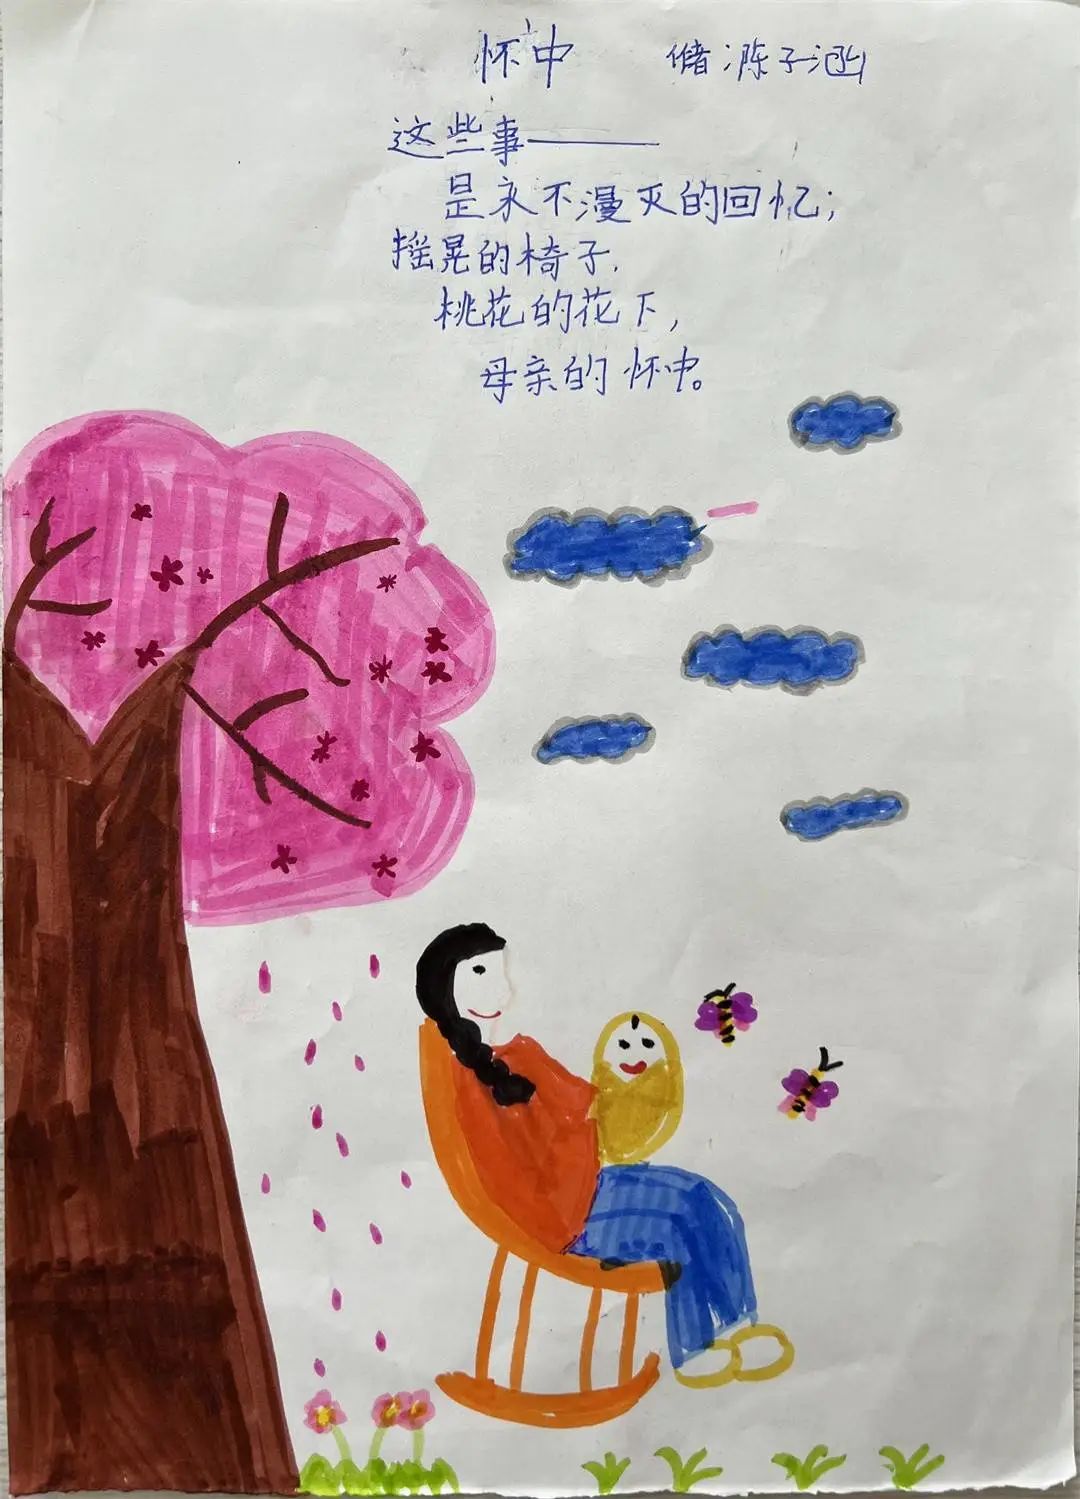 怀中 储:陈子涵
这些事——
是永不漫灭的回忆;
摇晃的椅子,
桃花的花下,
母亲的怀中。